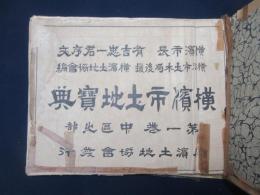 横濱市長 有吉忠一君序文
横濱市土木局後援 横濱土地協會編
横濱市土地寶典
第一巻 中區之部
濱土地協會發行